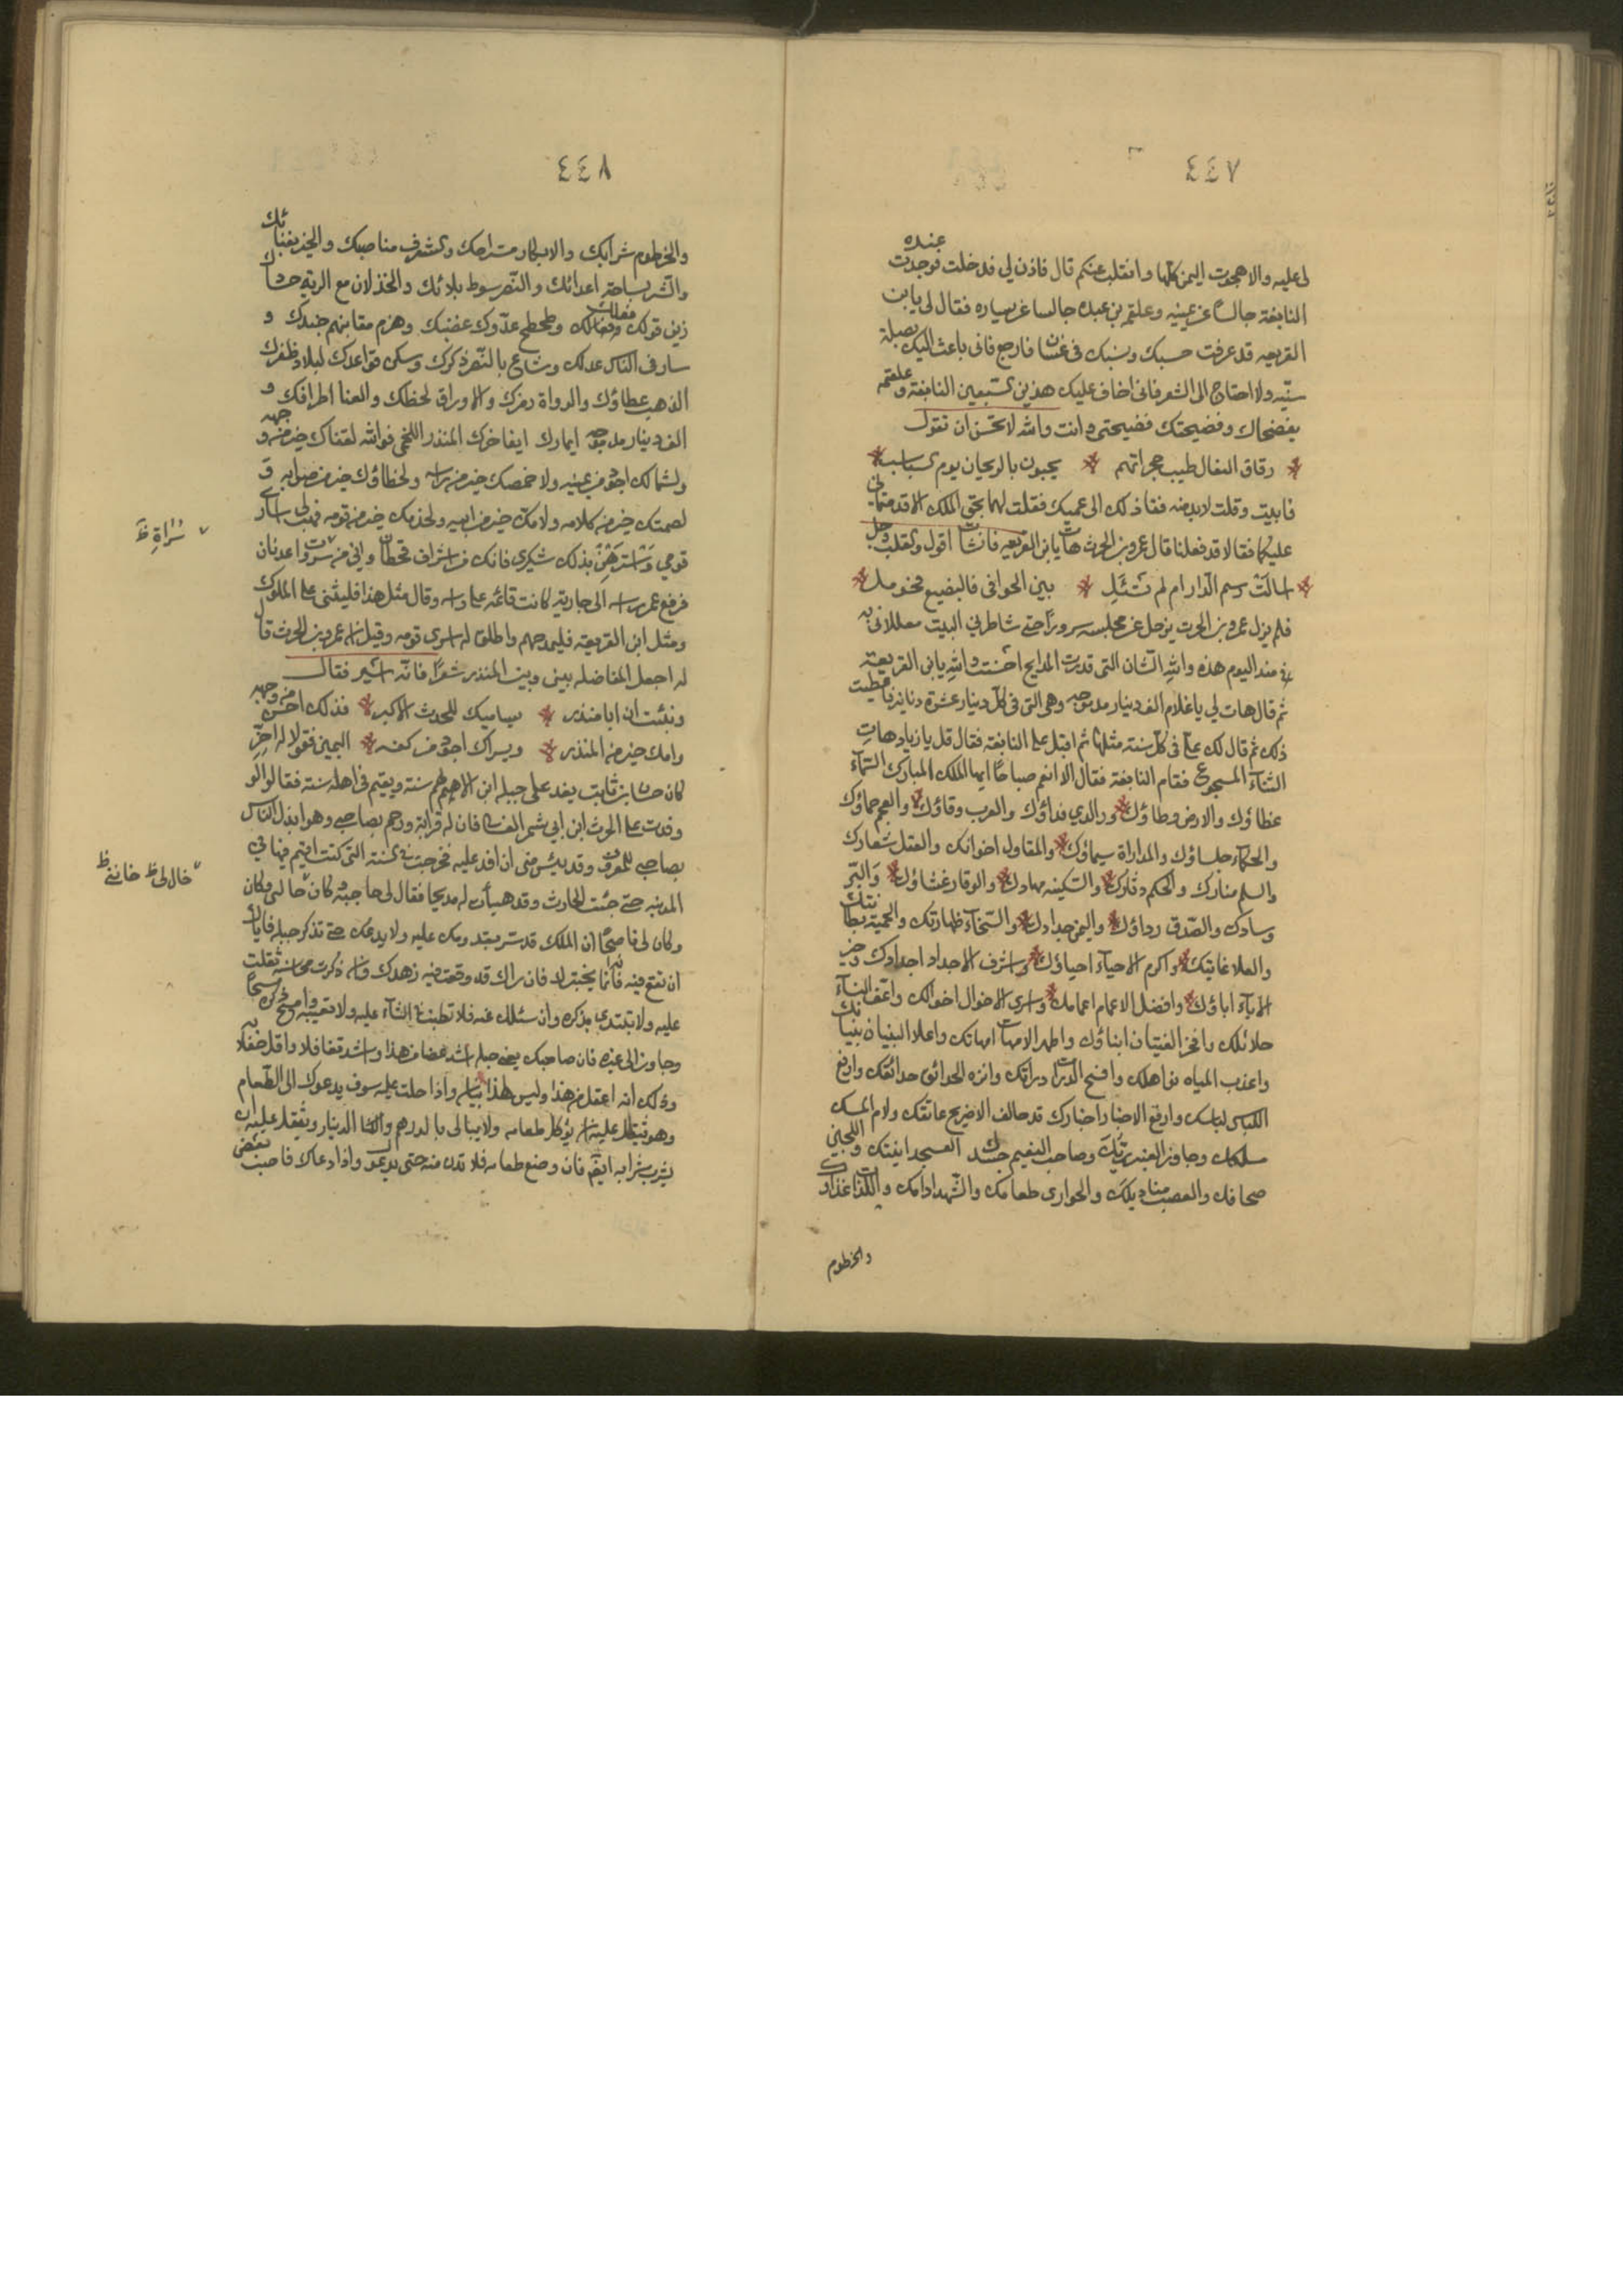 ٤٤٧
عنده
لى عليه والا هجوت اليمن كلها وانتقلت عنكم قال فاذن لي فدخلت فوجدت
النابغة جالسا عن يمينه وعلقمه بن عبده جالسا عن يساره فقال لى يابن
القريعه قد عرفت حسبك ونسبك فى غسان فارجع فانى باعث اليك بصلة
سنيه ولا احتاج الى الشعر فانى اخاف عليك هذين السبعين النابغة وعلقمه
يفضحاك وفضيحتك فضيحتى وانت والله لا تحسن ان تقول
رقاق النعال طيب حجراتهم يحيون بالريحان يوم السباسب
فابيت وقلت لا بد منه فقا ذلك الى عميك فقلت لهما بحق الملك الا قدمتمانى
عليكما فقالا قد فعلنا قال عمرو بن الحرث هات يابن القريعه فانشات اقول والقلب وجل
اسالت رسم الدار ام لم تسئل بين الحوافى فالبضيع فحومل
فلم يزل عمرو بن الحرث يزحل عن مجلسه سرورا حتى شاطر البيت
منذ اليوم هذه والله التى قدرت المدايح احسنت والله يابن القريعة
ثم قال هات لي يا غلام الف دينار مدموجه وهى التى فى كل دينار عشرة دنانير فاعطيت
ذلك ثم قال لك على فى كل سنة مثلها ثم اقبل على النابغة فقال قل يا زياد هات
الثناء المسجوع فقام النابغة فقال الا انعم صباحا ايها الملك المبارك السماء
غطاؤك والارض وطاؤك ووالدي فداؤك والعرب وقاؤك والعجم حماؤك
والحكماء جلساؤك والمداراة سيماؤك والمقاول اخوانك والعقل شعارك
والسلم منارك والحكم دثارك والسكينه مهادك والوقار غشاؤك والبر
وسادك والصدق رداؤك واليمن حداوك والسخاء ظهارتك والحمية بطانتك
والعلا غايتك واكرم الاحياء احياؤك واشرف الاجداد اجدادك وخير
الاباء اباؤك وافضل الاعمام اعمامك واسرى الاخوال اخوالك واعف النساء
حلائلك وافخر الفتيان ابناؤك واطهر الامهات امهاتك واعلا البنيان بنيانك
واعذب المياه مناهلك وافسح الدارات داراتك وانزه الحدائق حدائقك وارفع
اللباس لباسك وارفع قد حالف الاضريج عاتقك ولام المسك
مسكك وجاور العنبر ترائبك وصاحب النعيم جسدك العسجد انيتك واللجين
صحافك والعصب مناديلك والحوارى طعامك والشهد ادامك واللذات غذاؤك
والخرطوم
٤٤٨
والخرطوم شرابك والابكار مستراحك والشرف مناصبك والخير بفنائك
والشر بساحة اعدائك والنصر سوط بلائك والخذلان مع الوية حسادك
زين قولك فعلك وطحطح عدوك غضبك وهزم مقانبهم جندك و
سار فى الناس عدلك وشاع بالنصر ذكرك وسكن قواعدك لبلاد ظفرك
الذهب عطاؤك والدواة رمزك والاوراق لحظك والعنا اطرافك و
الف دينار مدموجه ايمارك ايفاخرك المنذر اللخمى فوالله لقفاك خير من وجهه
ولشمالك اجود من يمينه ولاخمصك خير من راسه ولخطاؤك خير من صوابه و
لصمتك خير من كلامه ولامك خير من ابيه ولخدمك خير من قومه فهب لى اسارى
قومي واسترهن بذلك شكرى فانك من اشراف قحطان واني من سروات عدنان
فرفع عمر راسه الى جارية كانت قائمه على راسه وقال مثل هذا فليثنى على الملوك
ومثل ابن القريعة فليمدحهم واطلق له اسرى قومه وقيل ان عمرو بن الحرث قال
له اجعل المفاضله بينى وبين المنذر شعرا فانه اسير فقال
ونبئت ان ابا منذر يساميك للحدث الاكبر فذلك احسن من وجهه
وامك خير من المنذر ويسراك اجود من كفه اليمين فقولا له اخر
كان حسان بن ثابت يفد على جبله ابن الايهم سنة ويقيم فى اهله سنة فقال لو
وفدت على الحرث ابن ابي شمر الغسانى فان له قرابة ورحم بصاحبى وهو ابذل الناس
بصاحبى للمعروف وقد يئس منى ان افد عليه فخرجت فى السنة التى كنت اقيم فيها فى
المدينه حتى جئت الحارث وقد هيأت له مديحا فقال لى حاجبه كان حا لى وكان
وكان لى ناصحا ان الملك قد سر بقدومك عليه ولا يدعك حتى تذكر جبله فاياك
ان تقع فيه فانما يختبرك فان راك قد وقعت فيه زهدك وان ذكرت محاسنه ثقلت
عليه ولا تبتدى بذكره وان سئلك عنه فلا تطنب فى الثناء عليه ولا تعيبه وامسح ذكره مسحا
وجاوزه الى غيره فان صاحبك يعنى جبله اشد اغضا من هذا واشد تغافلا واقل حفلا به
وذلك انه اعقل من هذا وليس لهذا بيان واذا دخلت عليه سوف يدعوك الى الطعام
وهو يثقل عليه ان يؤكل طعامه ولا يبالى بالدرهم والدينار ويثقل عليه ان
يشرب شرابه ايضا فان وضع طعامه فلا تدن منه حتى يدعوك واذا دعاك فاصب بعض
سُراةِ ظ
خال لى ظ